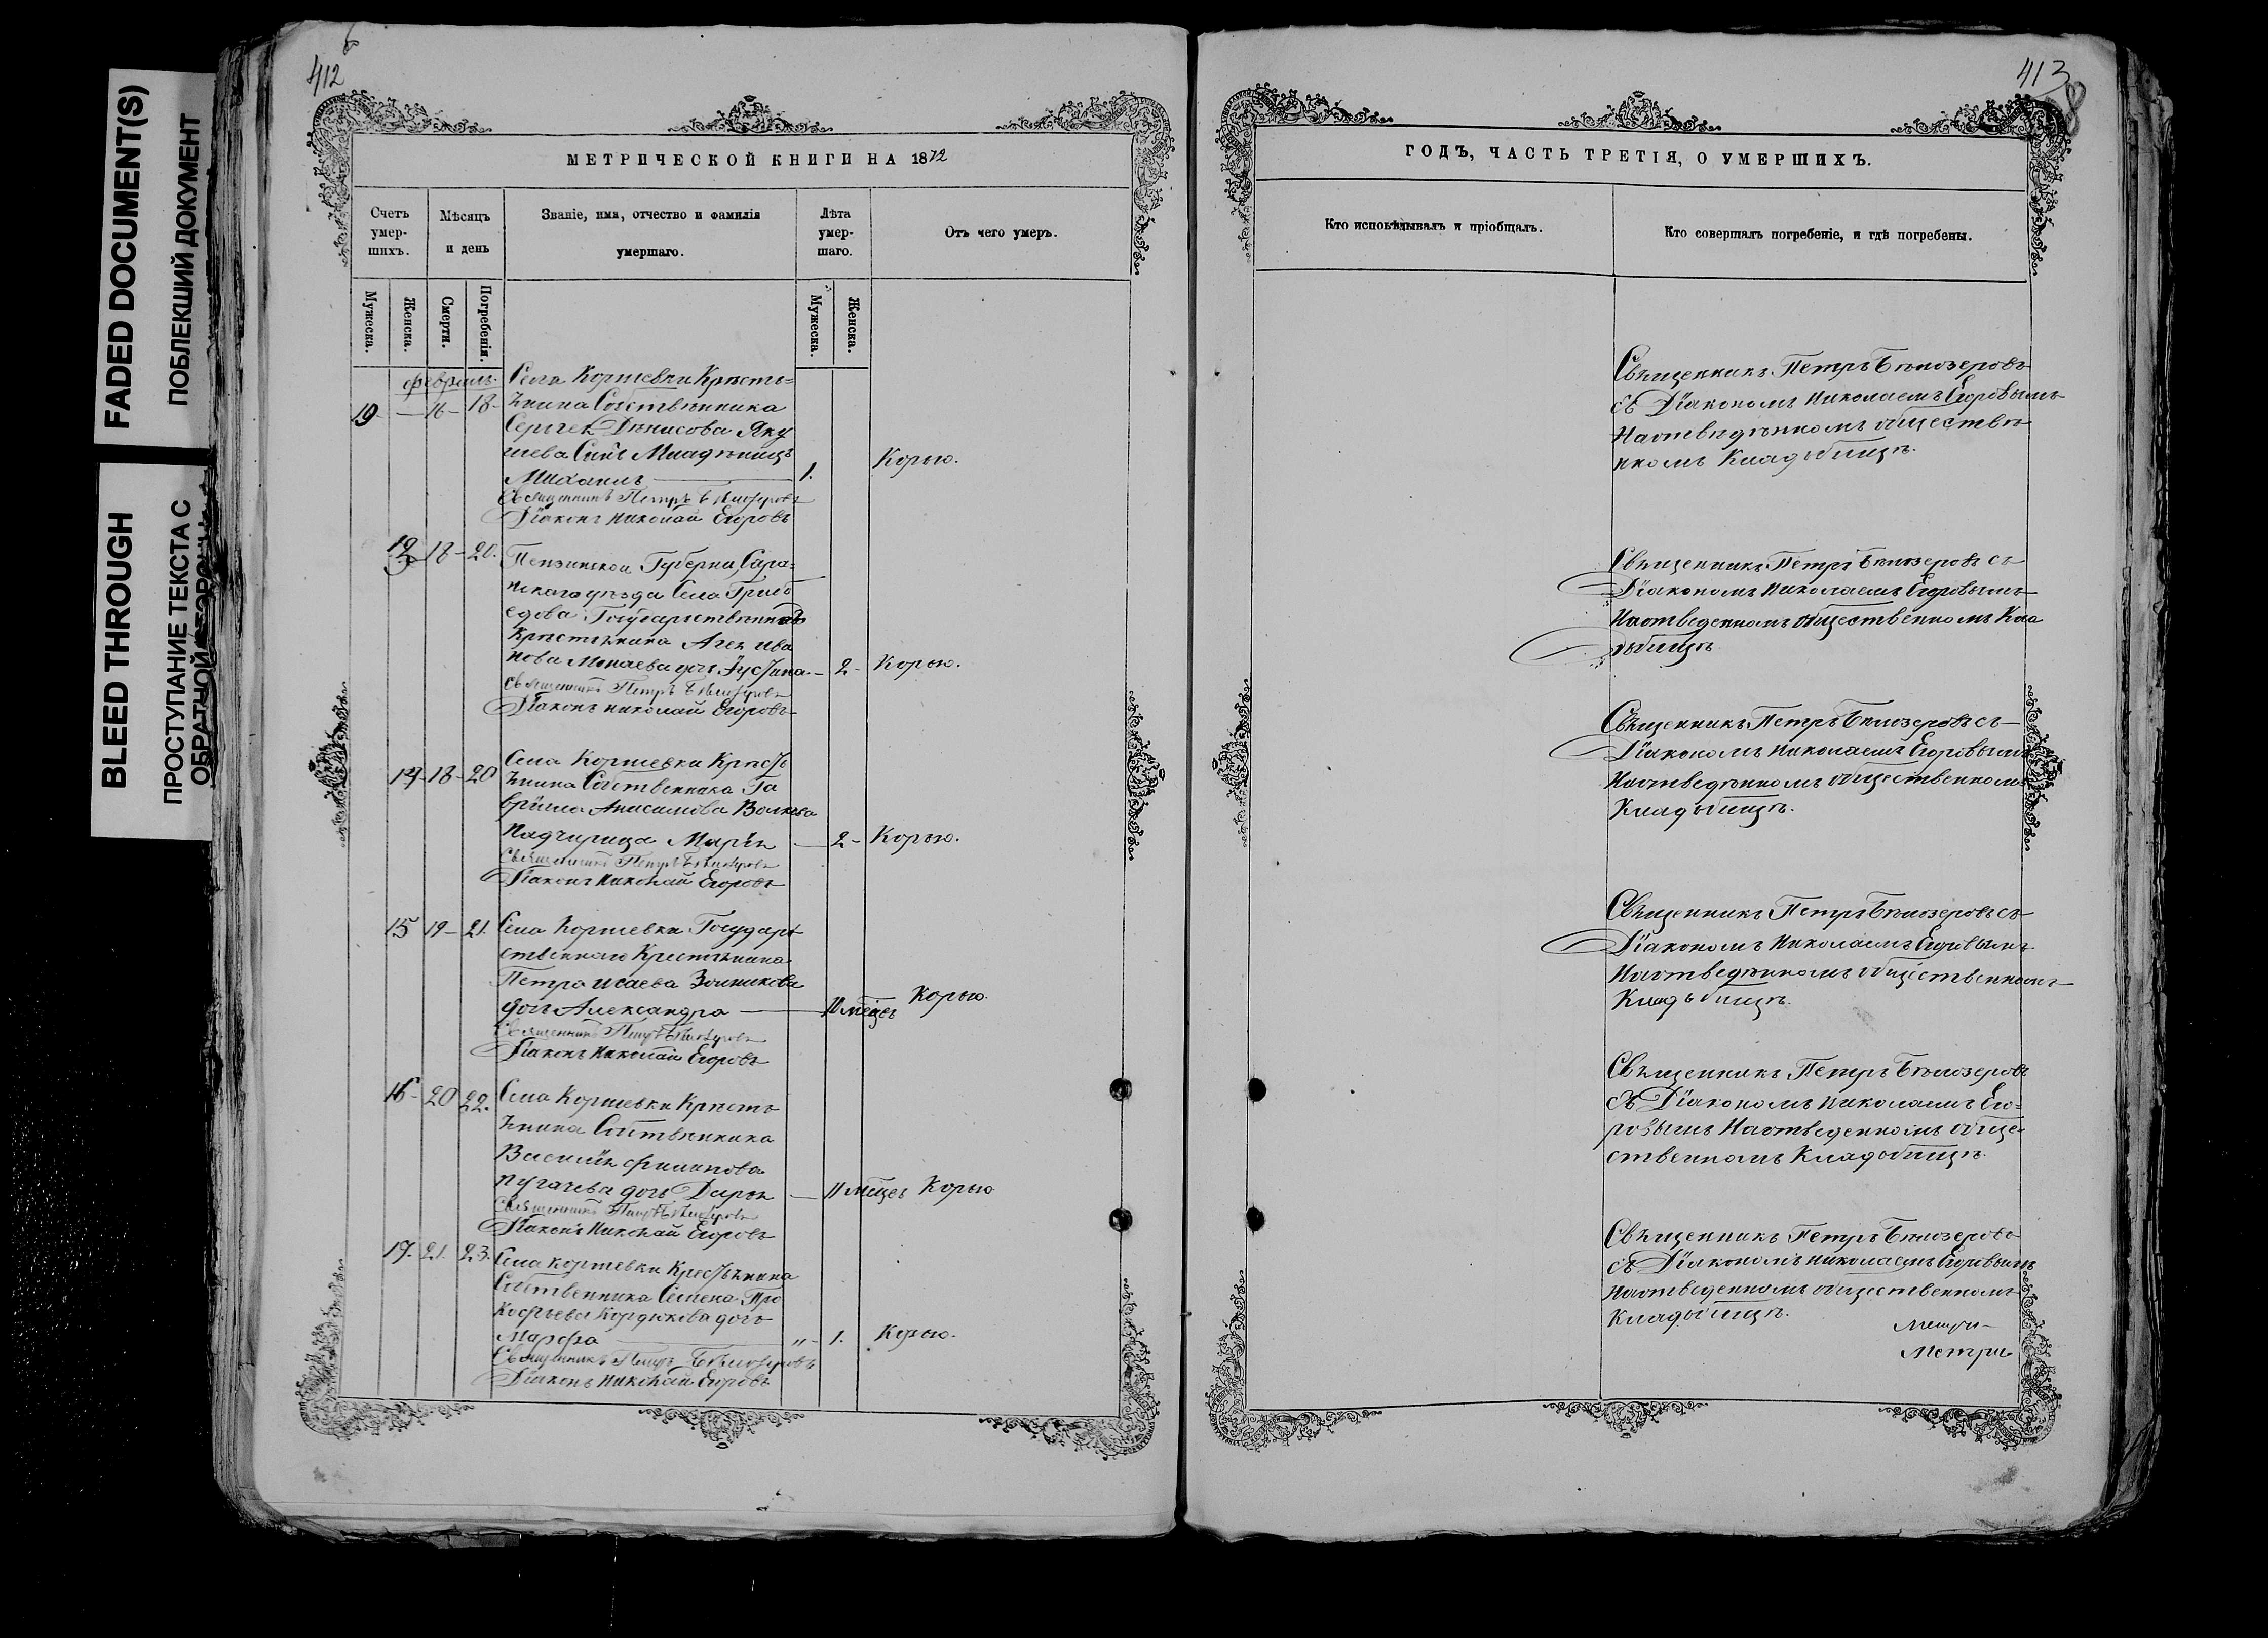 FADED DOCUMENT(S)
ПОБЛЕКШИЙ ДОКУМЕНТ
BLEED THROUGH
ПРОСТУПАНИЕ ТЕКСТА С
ОБРАТНОЙ
412
МЕТРИЧЕСКОЙ КНИГИ НА 1872
Счетъ умер-шихъ.
Мѣсяцъ и день
Званіе, имя, отчество и фамилія умершаго.
Лѣта умер-шаго.
Отъ чего умеръ.
Мужеска.
Женска.
Смерти.
Погребенія.
Мужеска.
Женска.
февраль
19 — 16 — 18 — Села Коржевки Кресть=
янина Собственника
Сергея Денисова Яку
шева Сынъ Младенецъ
Михаилъ — 1. Корью.
Священникъ Петръ Бѣлозеровъ
Діаконъ Николай Егоровъ
18 — 20. Пензинской Губерни, Сара=
нскаго уѣзда Села Грибо
едова Государственнаго
Крестьянина Агея Ива
нова дочь — 2 — Корью.
Священникъ Петръ Бѣлозеровъ
Діаконъ Николай Егоровъ
14 — 18 — 20 Села Коржевки Кресть
янина Собственника Га
вріила Анисимова Волкова
Падчирица Марія — 2 — Корью.
Священникъ Петръ Бѣлозеровъ
Діаконъ Николай Егоровъ
15 19 — 21. Села Коржевки Государ
ственнаго Крестьянина
Петра Исаева
дочь Александра — Корью.
Священникъ Петръ Бѣлозеровъ
Діаконъ Николай Егоровъ
16 — 20 22. Села Коржевки Кресть
янина Собственника
Василія Филипова
Пугачева дочь Дарья — 11 мѣцев Корью
Священникъ Петръ Бѣлозеровъ
Діаконъ Николай Егоровъ
17. 21. 23. Села Коржевки Крестьянина
Собственника Семена Про
кофьева Кордюкова дочь
Марфа — „ — 1. Корью.
Священникъ Петръ Бѣлозеровъ
Діаконъ Николай Егоровъ
413
ГОДЪ, ЧАСТЬ ТРЕТІЯ, О УМЕРШИХЪ.
Кто исповѣдывалъ и пріобщалъ.
Кто совершалъ погребеніе, и гдѣ погребены.
Священникъ Петръ Бѣлозеровъ
съ Діакономъ Николаемъ Егоровымъ
На отведѣнномъ обществѣ
нномъ Кладбищѣ.
Священникъ Петръ Бѣлозеровъ съ
Діакономъ Николаемъ Егоровымъ
На отведенномъ общественномъ Кла
дбищѣ
Священникъ Петръ Бѣлозеровъ съ
Діакономъ Николаемъ Егоровымъ
На отведѣнномъ общественномъ
Кладбищѣ.
Священникъ Петръ Бѣлозеровъ съ
Діакономъ Николаемъ Егоровымъ
На отведѣнномъ общественномъ
Кладбищѣ.
Священникъ Петръ Бѣлозеровъ
съ Діакономъ Николаемъ Его=
ровымъ На отведенномъ обще
ственномъ Кладбищѣ.
Священникъ Петръ Бѣлозеровъ
съ Діакономъ Николаемъ Егоровымъ
На отведенномъ общественномъ
Кладбищѣ.
Метри
Метри